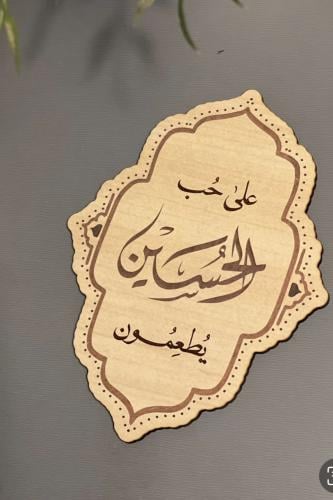 على حُب
الحُسَين
يُطعِمُون